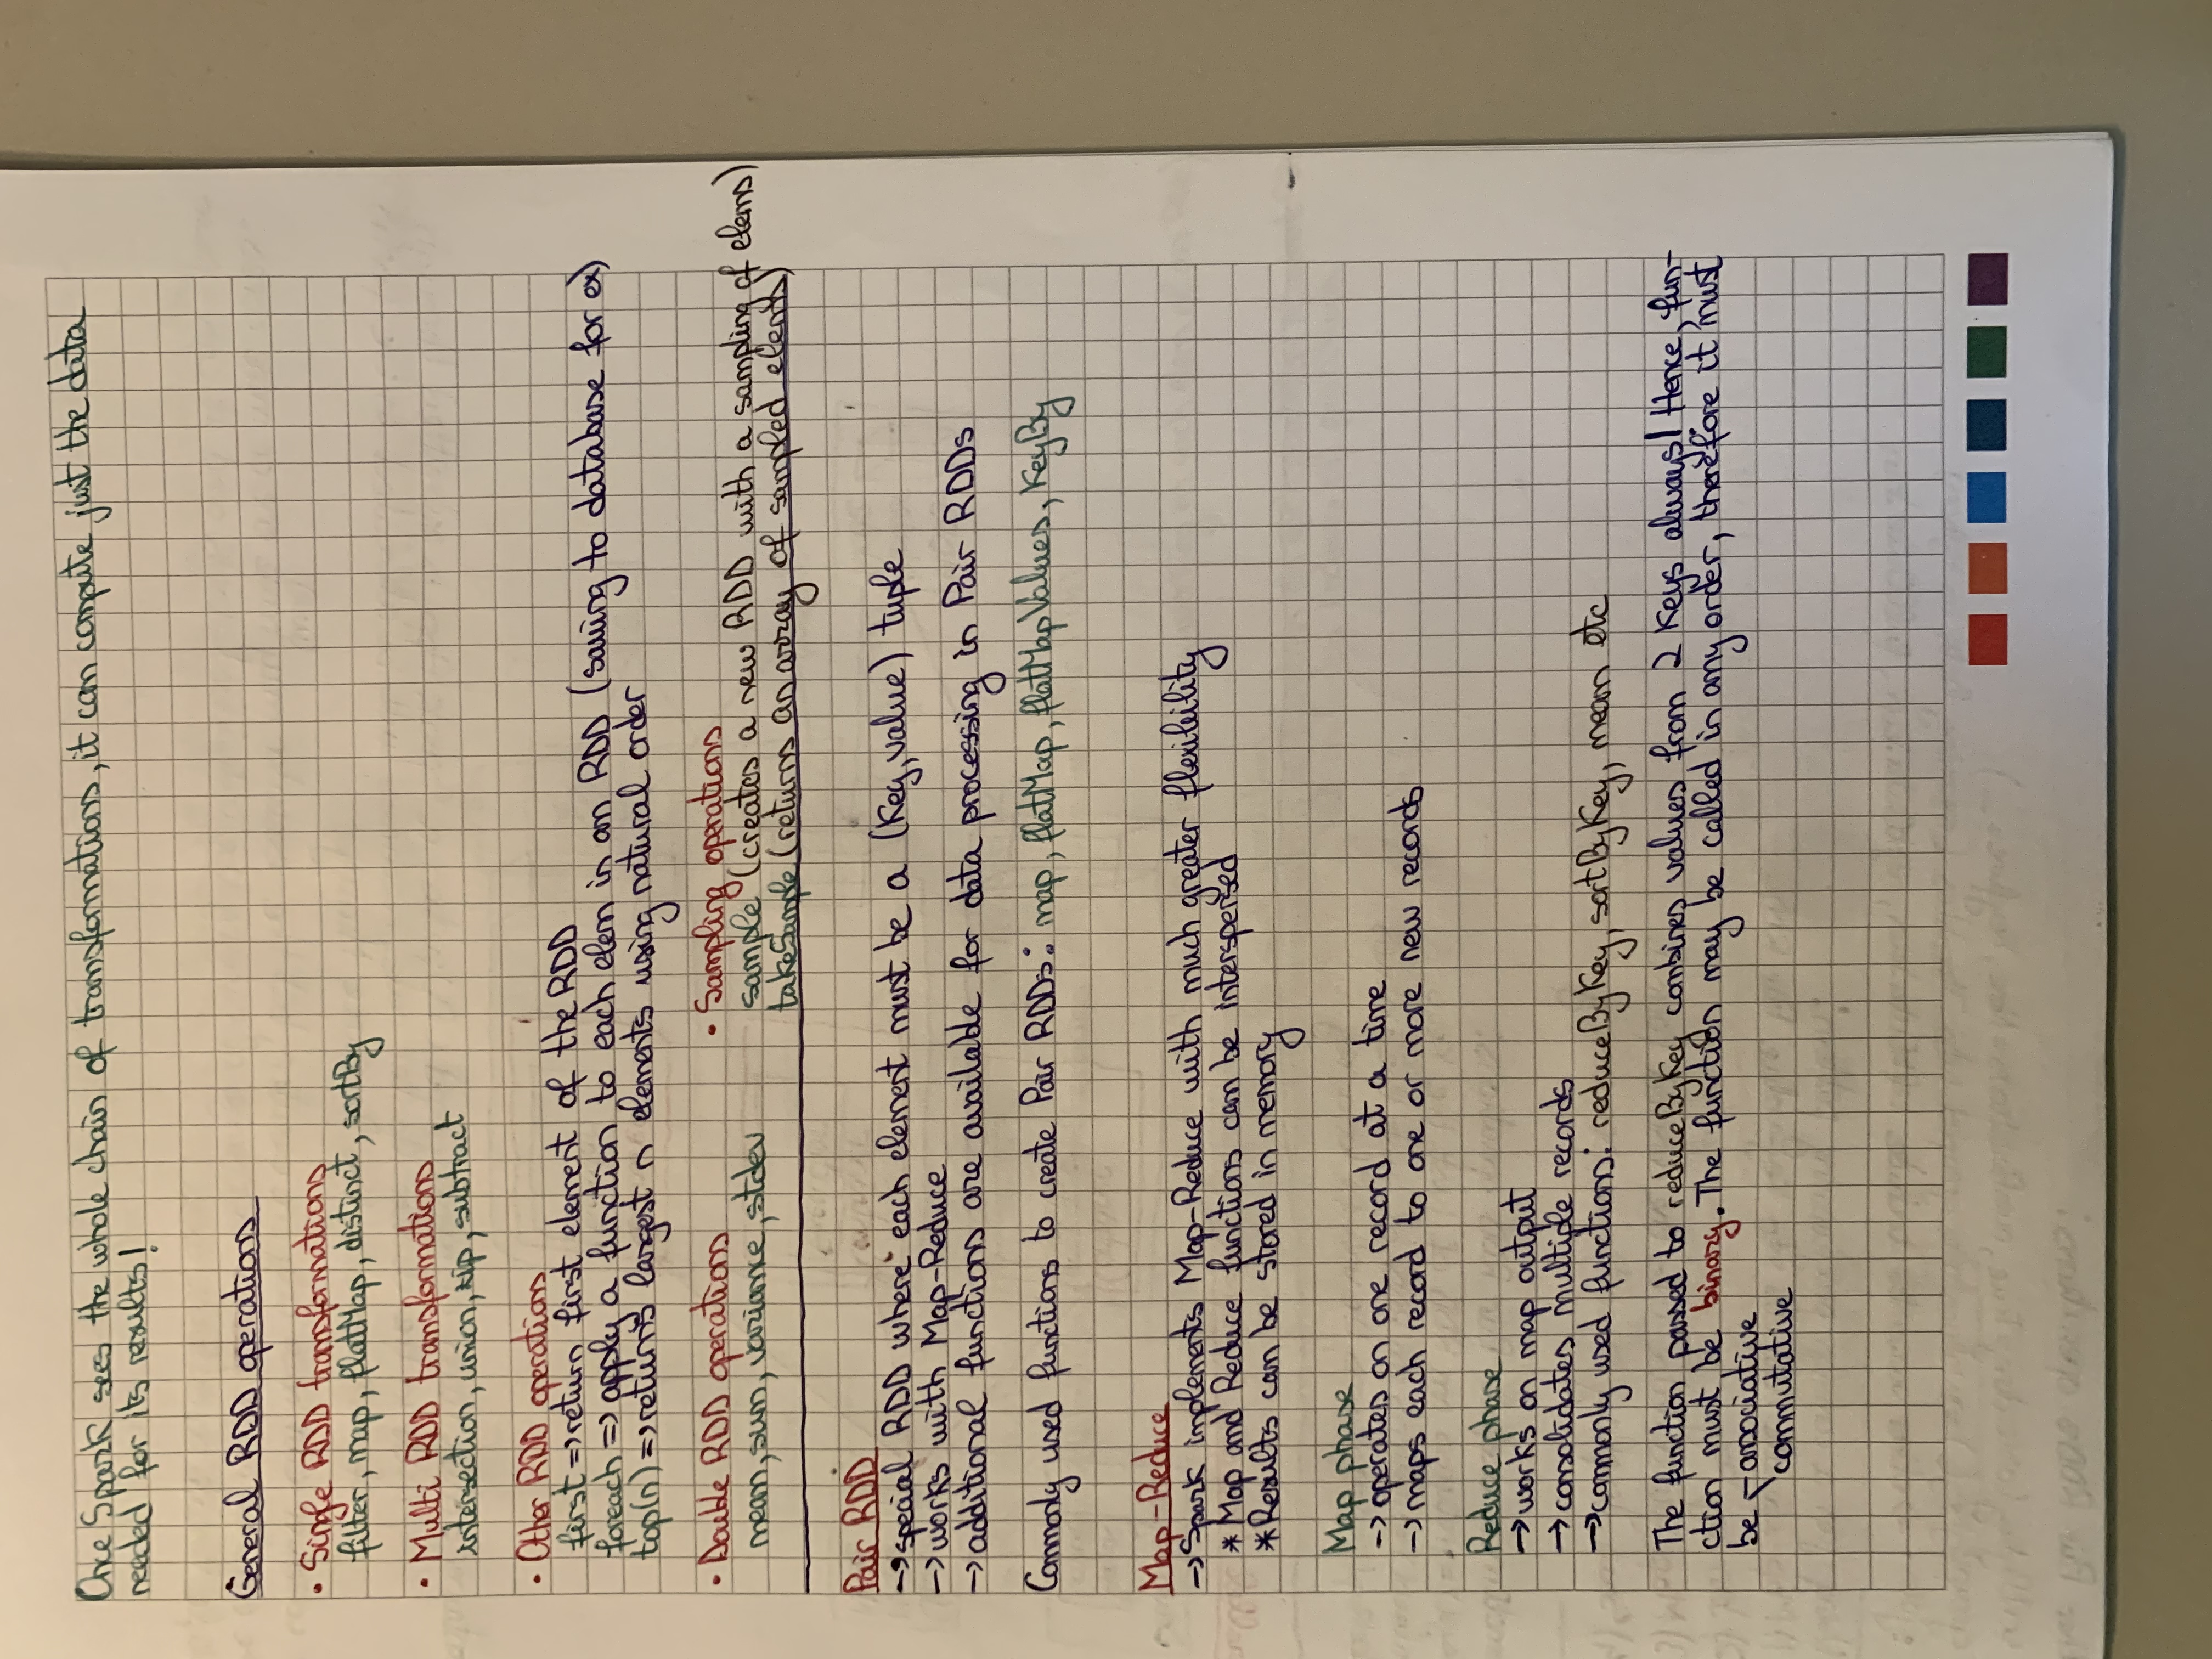 Once Spark sees the whole chain of transformations, it can compute just the data
needed for its results!
General RDD operations
• Single RDD transformations
filter, map, flatMap, distinct, sortBy
• Multi RDD transformations
intersection, union, zip, subtract
• Other RDD operations
first => return first element of the RDD
foreach => apply a function to each elem in an RDD (saving to database for ex)
top(n) => returns largest n elements using natural order
• Double RDD operations
mean, sum, variance, stdev
• Sampling operations
sample (creates a new RDD with a sampling of elems)
takeSample (returns an array of sampled elems)
Pair RDD
→ special RDD where each element must be a (key, value) tuple
→ works with Map-Reduce
→ additional functions are available for data processing in Pair RDDs
Commonly used functions to create Pair RDDs: map, flatMap, flatMapValues, keyBy
Map-Reduce
→ Spark implements Map-Reduce with much greater flexibility
* Map and Reduce functions can be interspersed
* Results can be stored in memory
Map phase
→ operates on one record at a time
→ maps each record to one or more new records
Reduce phase
→ works on map output
→ consolidates multiple records
→ commonly used functions: reduceByKey, sortByKey, mean etc
The function passed to reduceByKey combines values from 2 keys always! Hence, fun-
ction must be binary. The function may be called in any order, therefore it must
be - associative
commutative